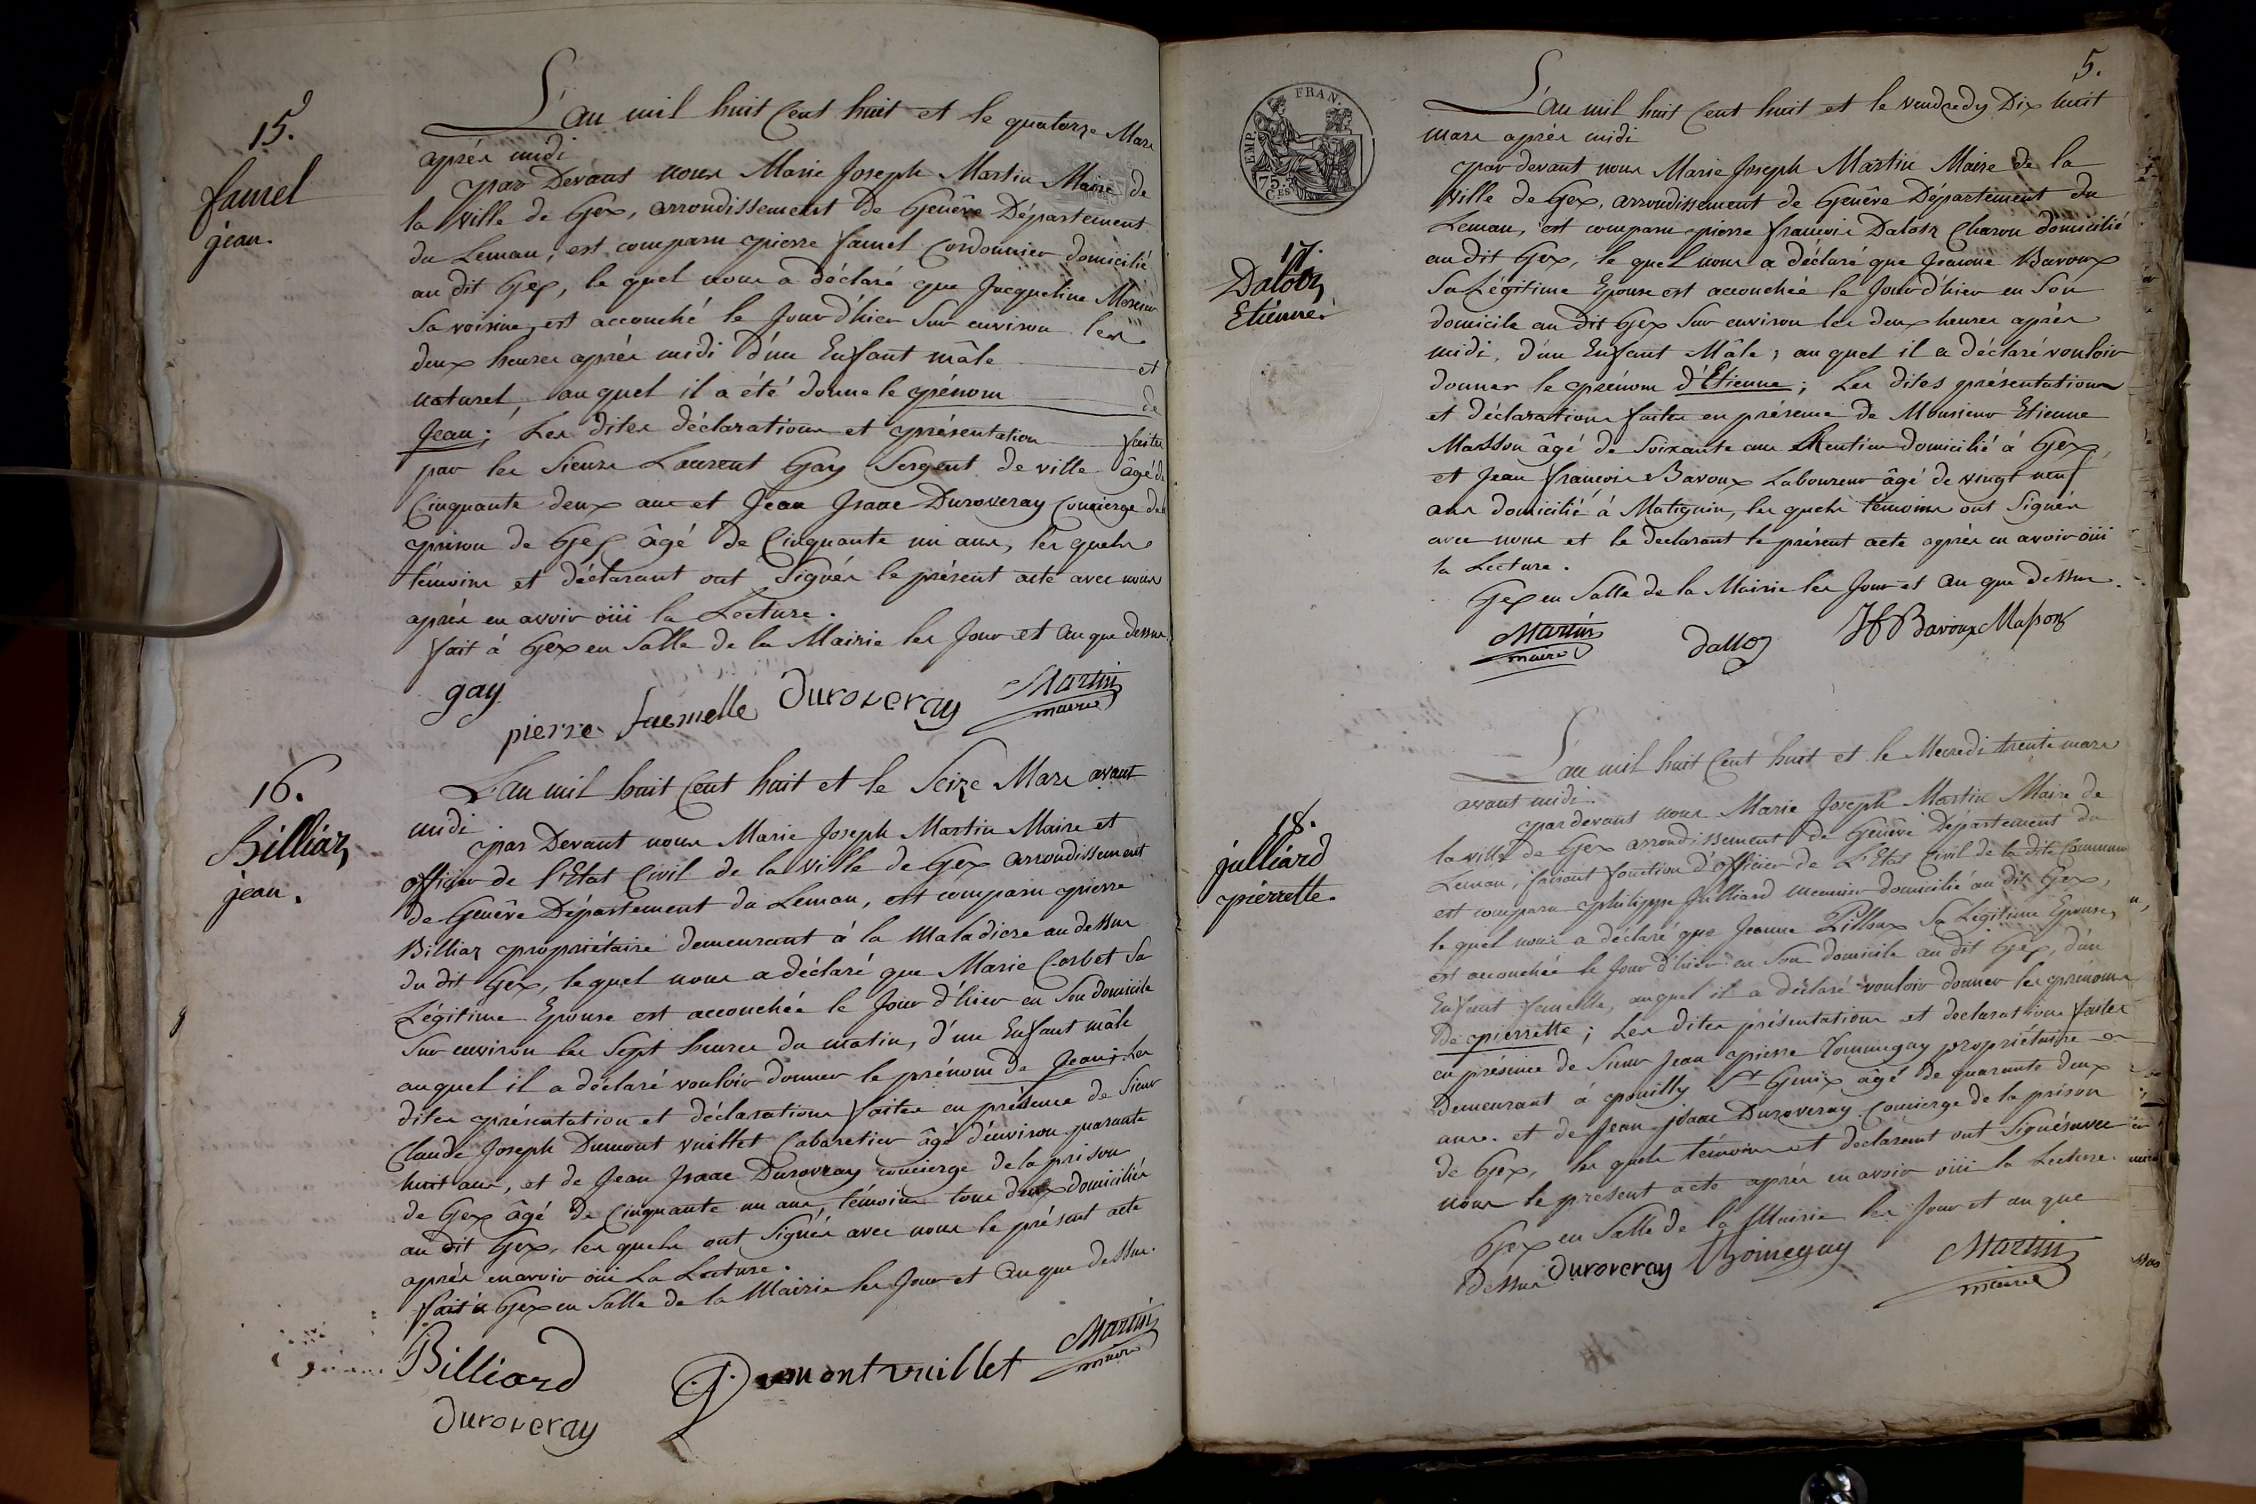 15.
famel
jean.
L'an mil huit Cent huit et le quatorze Mars
après midi
par Devant nous Marie Joseph Martin Maire de
la Ville de Gex, arrondissement de Genêve Département
du Leman, est comparu pierre famel Cordonnier domicilié
au dit Gex, le quel nous a déclaré que Jacqueline
Sa voisine, est accouché le Jour d'hier Sur environ les
deux heures après midi d'un Enfant mâle et
naturel, au quel il a été donné le prénom de
Jean; Les dites déclarations et présentation faites
par les Sieurs Laurent Gay Sergent de ville âgé de
Cinquante deux ans et Jean Isaac Duroveray Concierge des
prison de Gex âgé de Cinquante un ans, les quels
témoins et déclarant ont Signés le présent acte avec nous
après en avoir oüi la Lecture.
fait à Gex en Salle de la Mairie les Jour et an que dessus.
gay
pierre faemelle
Duroveray
Martin
maire
16.
Billiaz
jean.
L'an mil huit Cent huit et le Seize Mars avant
midi
par Devant nous Marie Joseph Martin Maire et
officier de l'Etat Civil de la Ville de Gex arrondissement
de Genêve Département du Leman, est comparu pierre
Billiaz propriétaire demeurant à la Maladiere au dessus
du dit Gex, lequel nous a déclaré que Marie Corbet Sa
Légitime Epouse est accouchée le Jour d'hier en Son domicile
Sur environ les Sept heures du matin, d'un Enfant mâle
auquel il a déclaré vouloir donner le prénom de Jean; Les
dites présentation et déclaration faites en présence de Sieur
Claude Joseph Dumont Vuillet Cabaretier âgé d'environ quarante
huit ans, et de Jean Isaac Duroveray concierge de la prison
de Gex âgé de Cinquante un ans, témoins tous deux domiciliés
au dit Gex, les quels ont Signés avec nous le présent acte
après en avoir oüi La Lecture.
fait à Gex en Salle de la Mairie les Jour et an que dessus.
Billiard
Dumont vuillet
Martin
maire
Duroveray
5.
EMP. FRAN.
75 CES
17.
Daloz
Etienne.
L'an mil huit Cent huit et le vendredy Dix huit
mars après midi
par devant nous Marie Joseph Martin Maire de la
Ville de Gex, arrondissement de Genêve Département du
Leman, est comparu pierre francois Daloz Charon domicilié
au dit Gex, le quel nous a déclaré que Jeanne Bavoux
Sa Légitime Epouse est accouchée le Jour d'hier en Son
domicile au dit Gex Sur environ les deux heures après
midi, d'un Enfant Mâle, au quel il a déclaré vouloir
donner le prénom d'Etienne; Les dites présentations
et déclarations faites en présence de Monsieur Etienne
Masson âgé de Soixante ans Rentier domicilié à Gex,
et Jean francois Bavoux Laboureur âgé de vingt neuf
ans domicilié à Matignin, les quels témoins ont Signés
avec nous et le declarant le présent acte après en avoir oüi
la Lecture.
Gex en Salle de la Mairie les Jour et an que dessus.
Martin
maire
Dalloz
JfBavoux
Masson
18.
julliard
pierrette.
L'an mil huit Cent huit et le Mecredi trente mars
avant midi
par devant nous Marie Joseph Martin Maire de
la ville de Gex arrondissement de Genêve Département du
Leman, faisant fonction d'officier de L'Etat Civil de la dite Commune
est comparu philippe Julliard meunier domicilié au dit Gex,
le quel nous a déclaré que Jeanne Pilloux Sa Légitime Epouse,
est accouchée le Jour d'hier en Son domicile au dit Gex, d'un
Enfant femelle, auquel il a déclaré vouloir donner les prénoms
de pierrette; Les dites présentations et declarations faites
en présence de Sieur Jean pierre propriétaire
Demeurant à pouilly St Genix âgé de quarante deux
ans. et de Jean isaac Duroveray Concierge de la prison
de Gex, les quels témoins et declarant ont Signés avec
nous le present acte après en avoir oüi la Lecture.
Gex en Salle de la Mairie les Jour et an que
dessus
Duroveray
Martin
maire